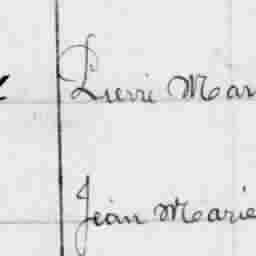 Pierre Mar
Jean Marie